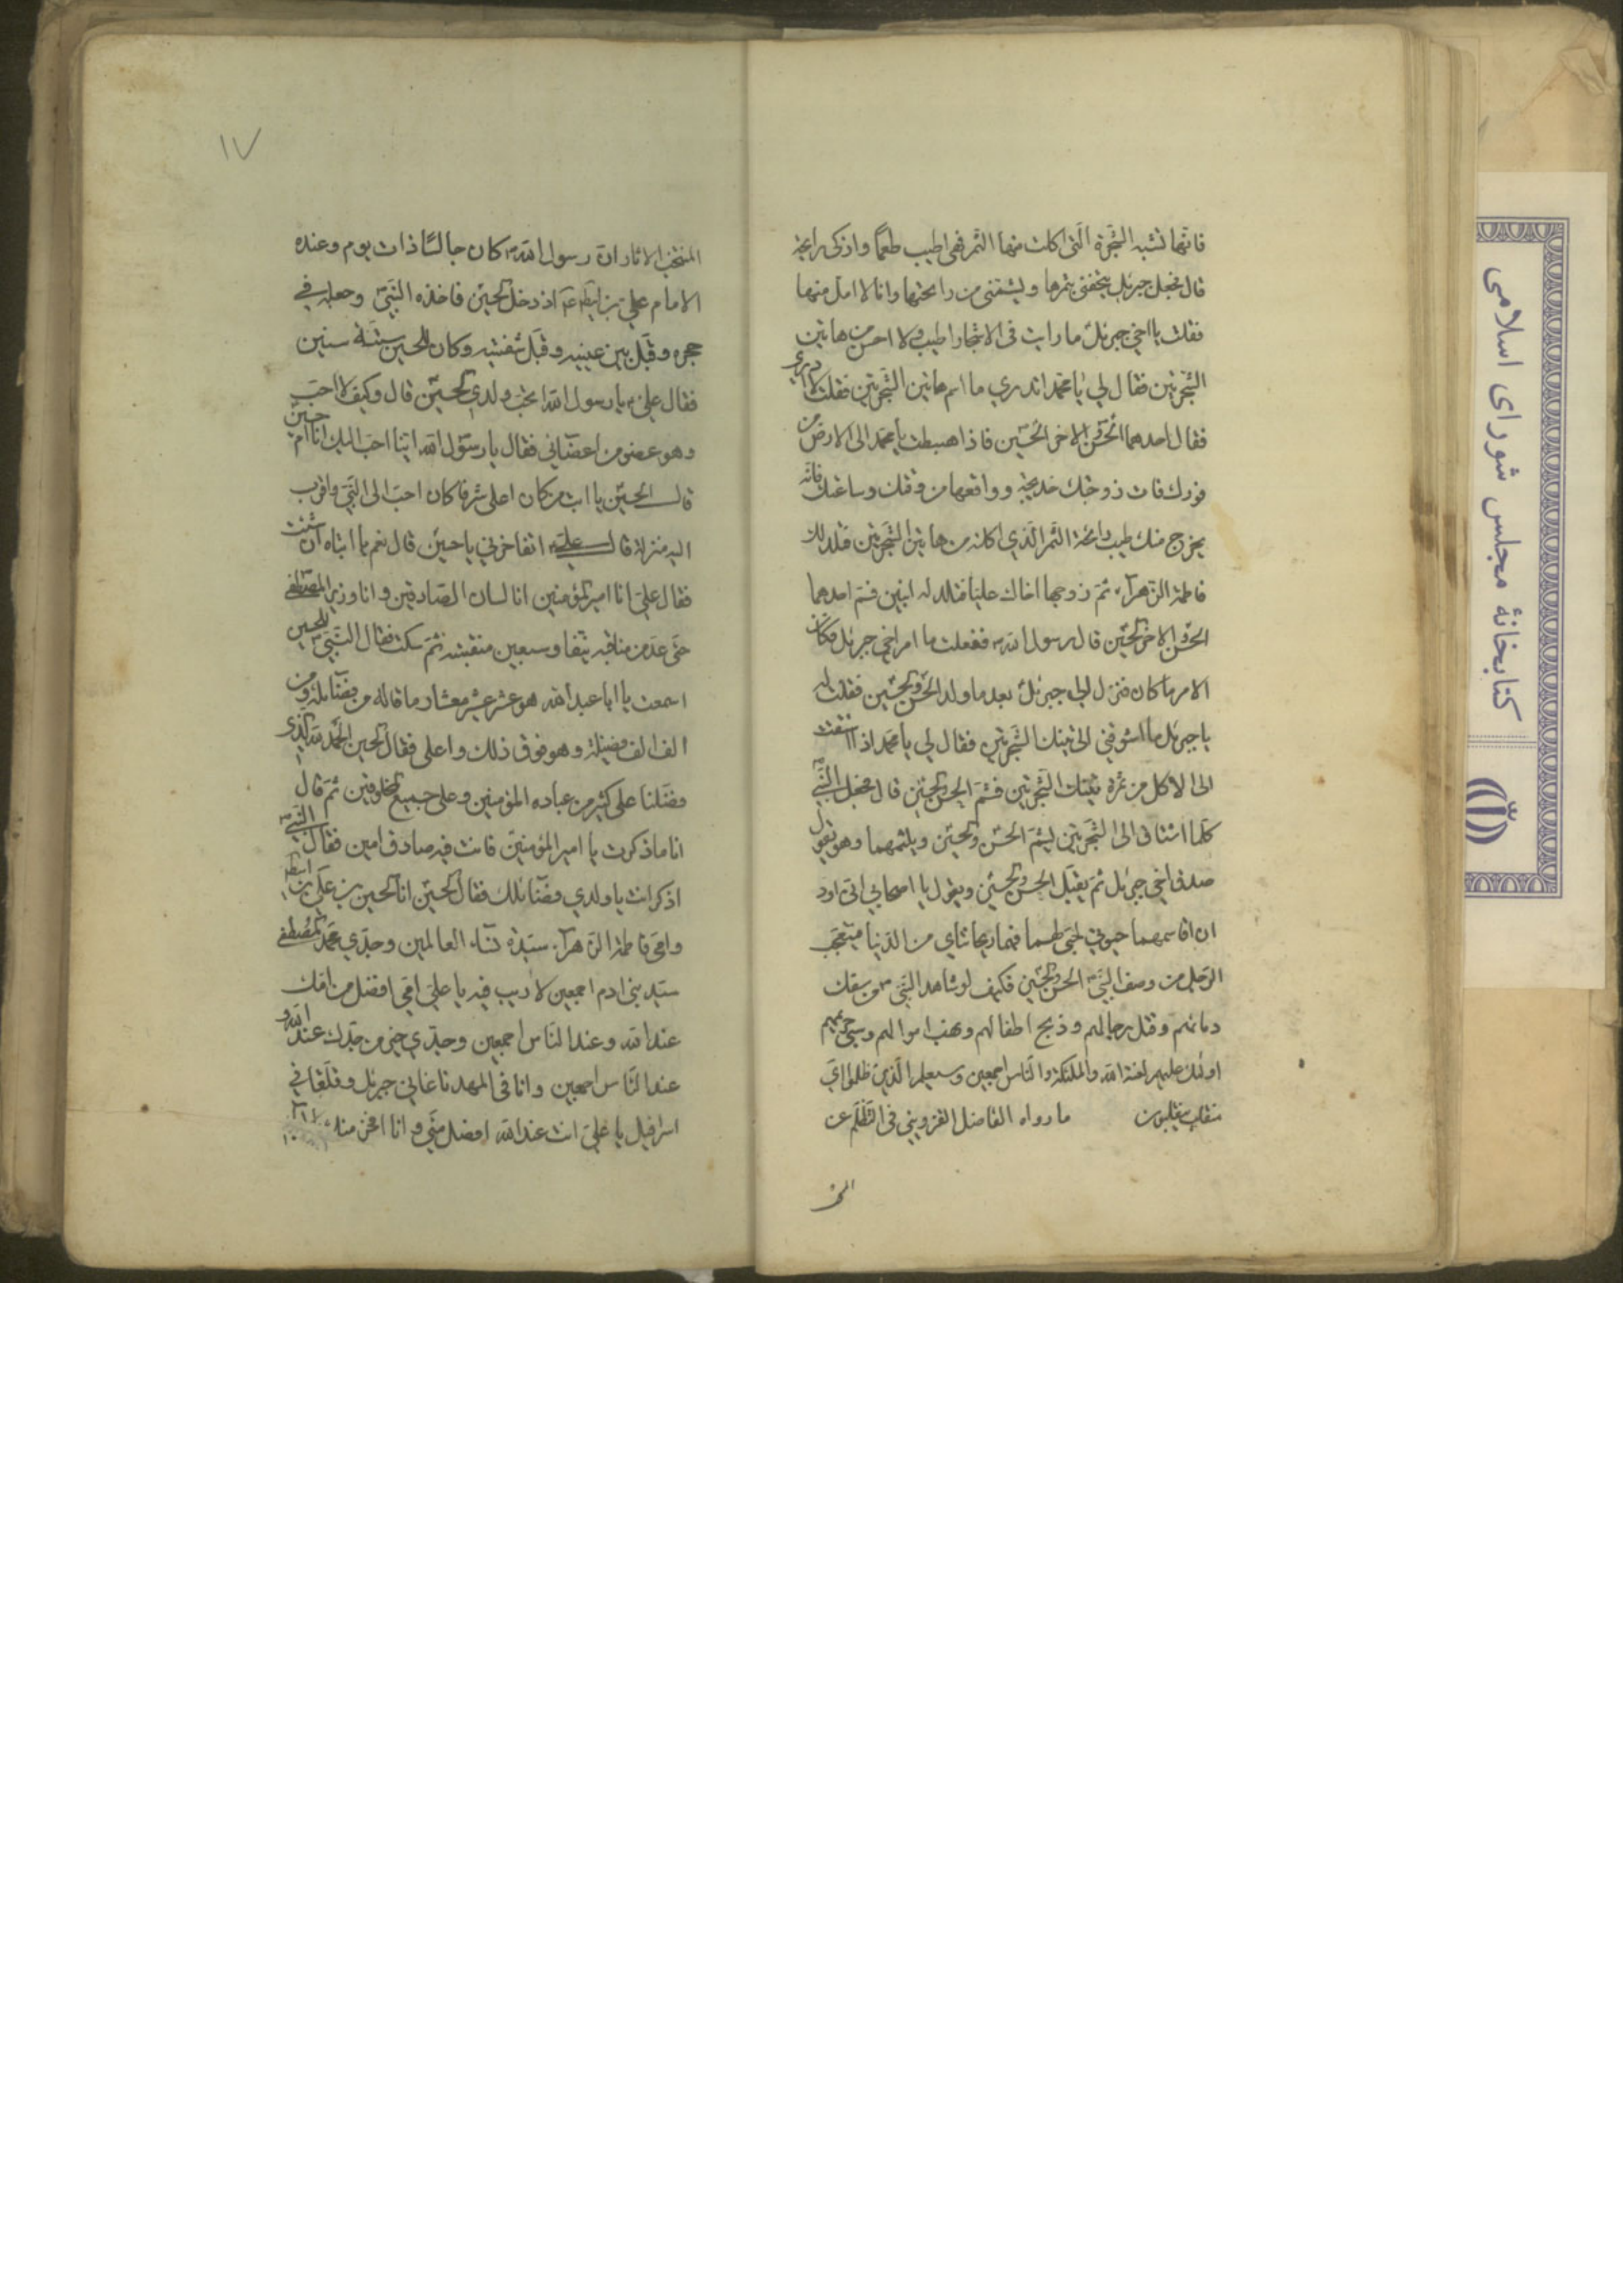 فانها تشبه الشجرة التی اکلت منها الثمر فهی اطیب طعمًا واذکی رایحة
قال فجعل جبرئیل یتحفنی بثمرها ویشمنی من رایحتها وانا لا امل منها
فقلت یا اخی جبرئیل ما رایت فی الاشجار اطیب ولا احسن من هاتین
الشجرتین فقال لی یا محمد اتدری ما اسم هاتین الشجرتین فقلت لا ادری
فقال احدهما الحسن والاخر الحسین فاذا هبطت یا محمد الی الارض من
فورک فات زوجتک خدیجة وواقعها من وقتک وساعتک فانه
یخرج منک طیب رائحة الثمر الذی اکلته من هاتین الشجرتین فتلد لک
فاطمة الزهرآء ثم زوجها اخاک علیا فتلد له ابنین فسم احدهما
الحسن والاخر الحسین قال رسول الله ص ففعلت ما امرنی اخی جبرئیل فکان
الامر ما کان فنزل الی جبرئیل بعد ما ولد الحسن والحسین فقلت له
یا جبرئیل ما اشوقنی الی تینک الشجرتین فقال لی یا محمد اذا اشتقت
الی الاکل من ثمرة تینک الشجرتین فشم الحسن والحسین قال فجعل النبی ص
کلما اشتاق الی الشجرتین یشم الحسن والحسین ویلثمهما وهو یقول
صدق اخی جبرئیل ثم یقبل الحسن والحسین ویقول یا اصحابی انی اود
ان اقاسمهما حیوتی لحبی لهما فهما ریحانتای من الدنیا فتعجب
الرجل من وصف النبی ص الحسن والحسین فکیف لو شاهد النبی ص من سفک
دمائهم وقتل رجالهم وذبح اطفالهم ونهب اموالهم وسبی حریمهم
اولئک علیهم لعنة الله والملئکة والناس اجمعین وسیعلم الذین ظلموا ای
منقلب ینقلبون ما رواه الفاضل القزوینی فی التظلم عن
المن
۱۷
المنتخب الاثار ان رسول الله ص کان جالسًا ذات یوم وعنده
الامام علی بن ابیطالب ع اذ دخل الحسین فاخذه النبی وجعله فی
حجره وقبل بین عینیه وقبل شفتیه وکان للحسین ستة سنین
فقال علی ع یا رسول الله اتحب ولدی الحسین قال وکیف لا احب
وهو عضو من اعضائی فقال یا رسول الله اینا احب الیک انا ام حسین
قال الحسین یا ابت من کان اعلی شرفا کان احب الی النبی واقرب
الیه منزلة قال علی ع اتفاخرنی یا حسین قال نعم یا ابتاه ان شئت
فقال علی انا امیر المؤمنین انا لسان الصادقین وانا وزیر المصطفی
حتی عد من مناقبه نیفا وسبعین منقبة ثم سکت فقال النبی ص للحسین
اسمعت یا ابا عبد الله هو عشر عشیر معشار ما قاله من فضائله ومن
الف الف فضیلة وهو فوق ذلک واعلی فقال الحسین الحمد لله الذی
فضلنا علی کثیر من عباده المؤمنین وعلی جمیع المخلوقین ثم قال
اما ما ذکرت یا امیر المؤمنین فانت فیه صادق امین فقال النبی ص
اذکر انت یا ولدی فضائلک فقال الحسین انا الحسین بن علی بن ابیطالب
وامی فاطمة الزهرآء سیدة نسآء العالمین وجدی محمد المصطفی
سید بنی ادم اجمعین لا ریب فیه یا علی امی افضل من امک
عند الله وعند الناس اجمعین وجدی خیر من جدک عند الله و
عند الناس اجمعین وانا فی المهد ناغانی جبرئیل وتلقانی
اسرافیل یا علی انت عند الله افضل منی وانا افخر منک
کتابخانهٔ مجلس شورای اسلامی